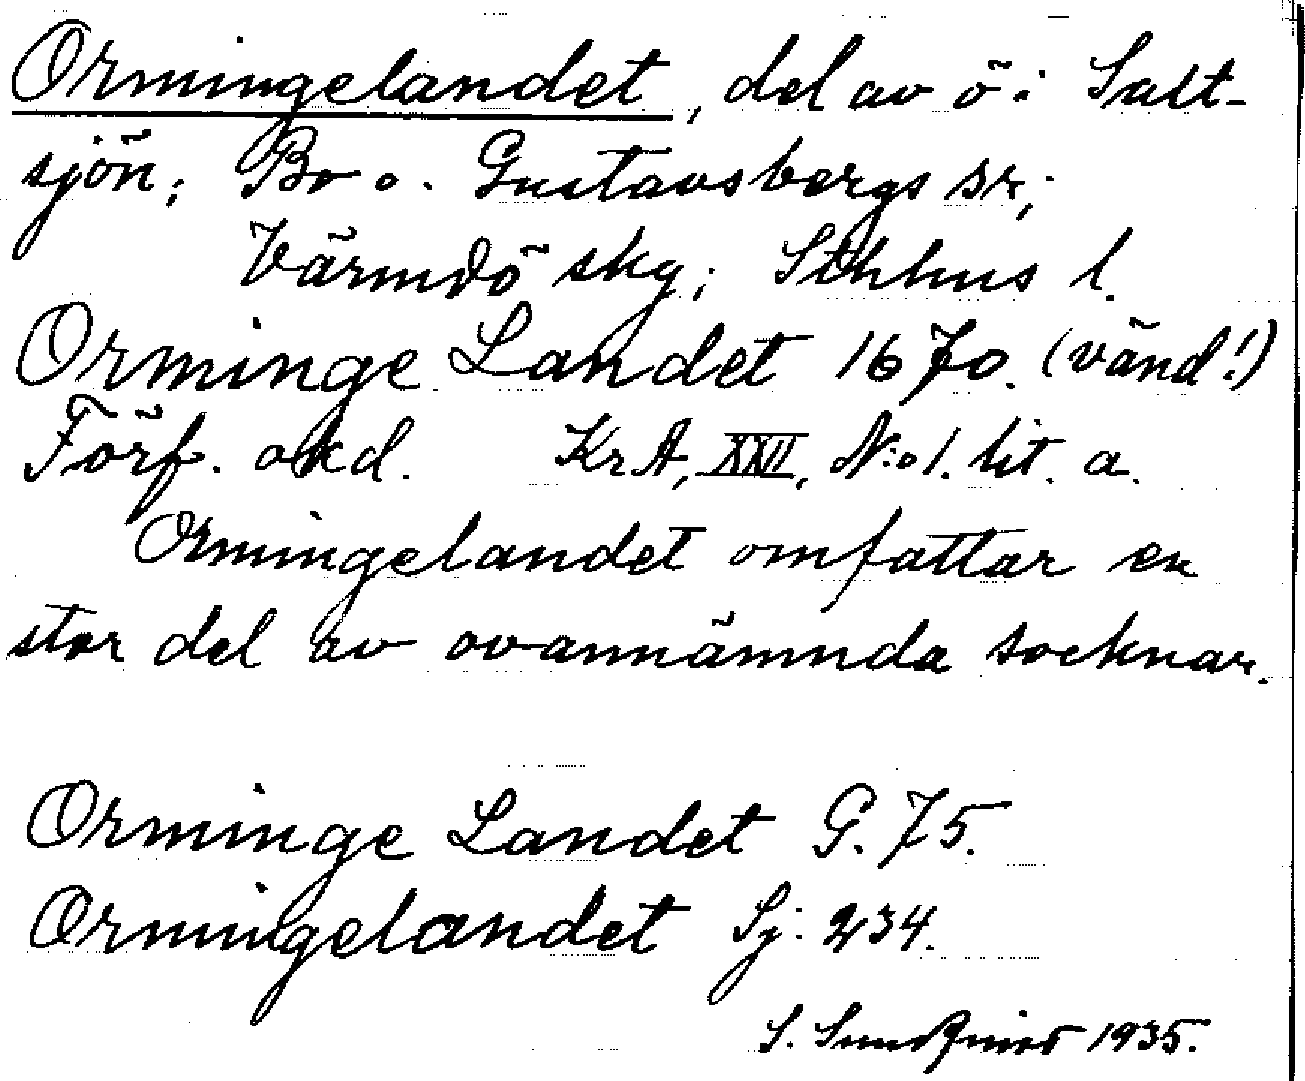 Ormingelandet, del av ö i Salt-
sjön; Bo o. Gustavsbergs sr;
Värmdö skg; Sthlms l.
Orminge Landet 1670. (vänd!)
Förf. okd. KrA, XXVI, N:o 1. lit. a.
Ormingelandet omfattar en
stor del av ovannämnda socknar.
Orminge Landet G. 75.
Ormingelandet Sj: 234.
S. Sundqvist 1935.